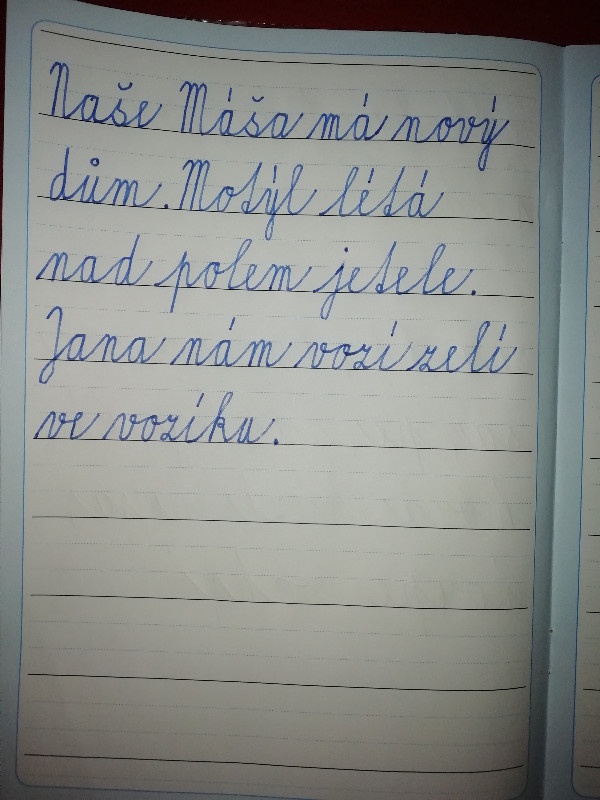 Naše Máša má nový
dům. Motýl létá
nad polem jetele.
Jana nám vozí zelí
ve vozíku.